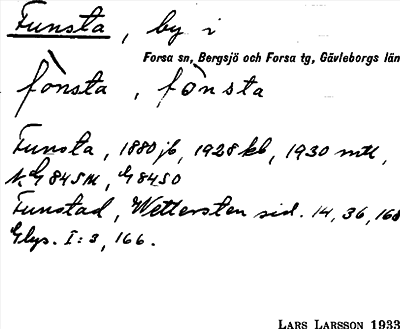 Funsta, by i
Forsa sn, Bergsjö och Forsa tg, Gävleborgs län
fònsta, fònsta
Funsta, 1880 jb, 1928 kb, 1930 mtl,
G 845 SO
Funstad, Wettersten sid. 14, 36, 168
Glys. I:3, 166.
LARS LARSSON 1933